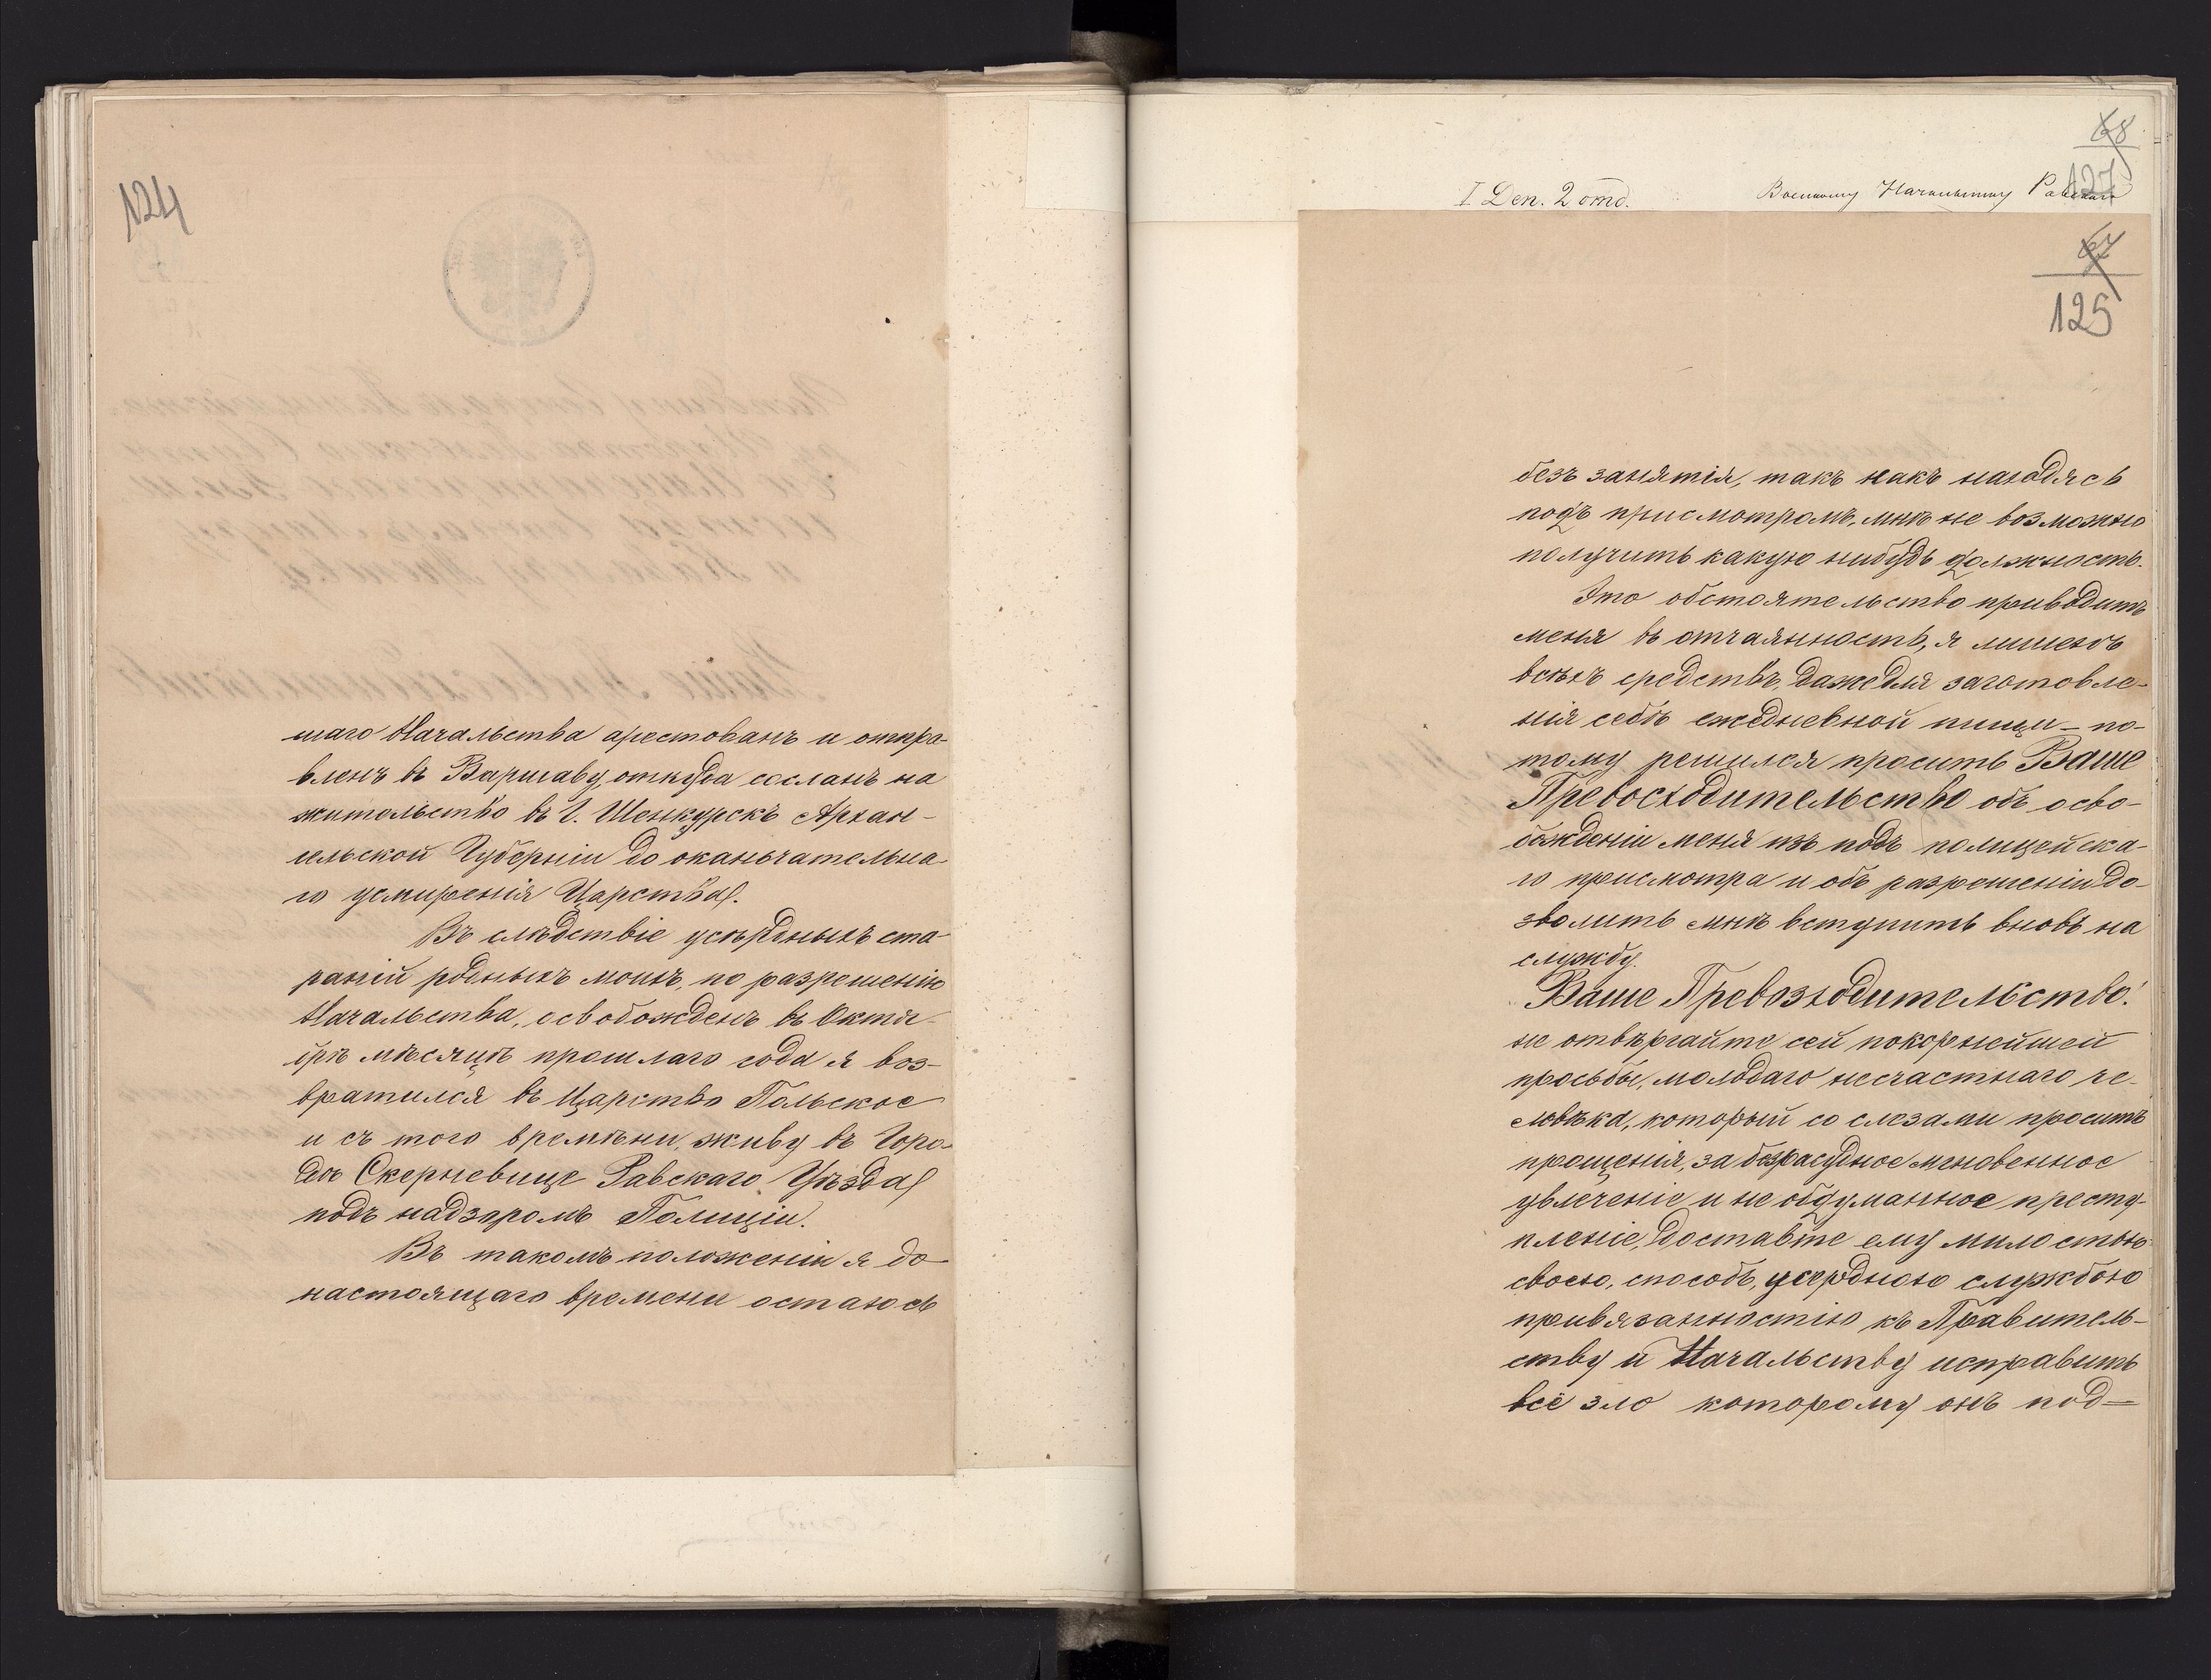 124
шаго Начальства арестованъ и отпра-
вленъ въ Варшаву, откуда сосланъ на
жительство въ Г. Шенкурскъ Архан-
гельской Губерніи до оканьчательна-
го усмиренія Царства.
Въ слѣдствіе усѣрдныхъ ста-
раній родныхъ моихъ, по разрешенію
Начальства, освобожденъ въ Октя-
брѣ мѣсяцѣ прошлаго года я воз-
вратился въ Царство Польское
и съ того времѣни, живу въ Горо-
дѣ Скерневице Равскаго Уѣзда
подъ надзоромъ Полиціи.
Въ такомъ положеніи я до
настоящаго времени остаюсь
68
127
I Деп. 2 отд. Военному Начальнику Равскаго
67
125
безъ занятія, такъ какъ находясь
подъ присмотромъ, мнѣ не возможно
получить какую нибудь должность.
Это обстоятельство приводитъ
меня въ отчаянность, я лишенъ
всѣхъ средствъ, даже для заготовле-
нія себѣ ежедневной пищи – по-
тому решился просить Ваше
Превосходительство объ осво-
божденіи меня изъ подъ полицейска-
го присмотра и объ разрешеніи до-
зволить мнѣ вступить вновь на
службу.
Ваше Превозходительство!
не отвѣргайте сей покорнейшей
просьбы, молодаго несчастнаго че-
ловѣка, который со слезами проситъ
прощенія, за безрасудное мгновенное
увлеченіе и не обдуманное престу-
пленіе, доставьте ему милостью
своею, способъ, усердною службою
привязанностію къ Правитель-
ству и Начальству исправить
всё зло которому онъ под-